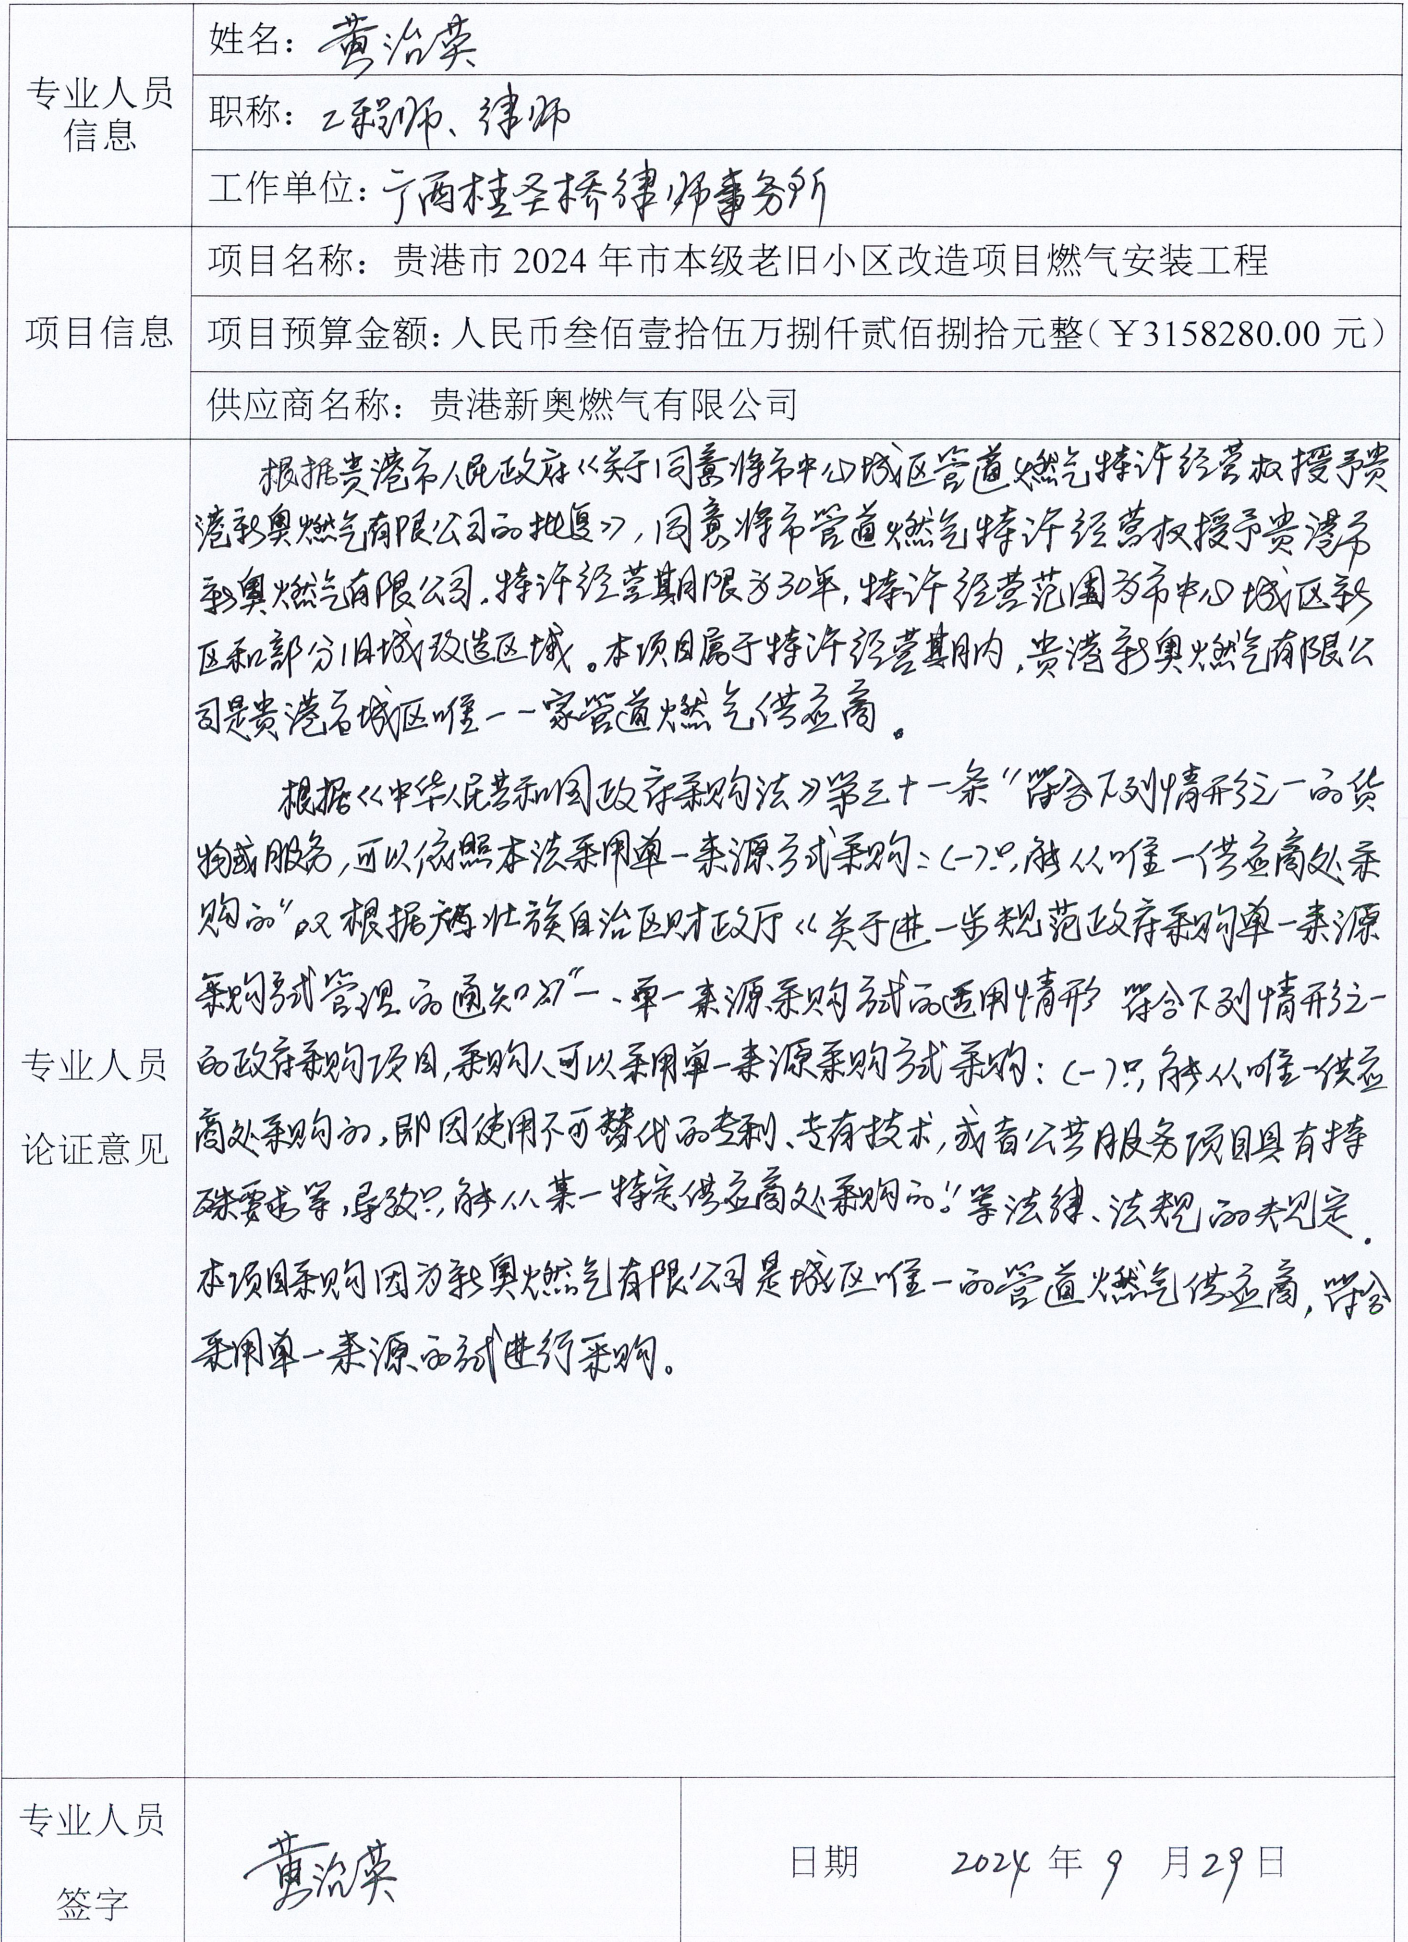 专业人员
信息
姓名：黄治英
职称：工程师、律师
工作单位：广西桂圣桥律师事务所
项目信息
项目名称：贵港市 2024 年市本级老旧小区改造项目燃气安装工程
项目预算金额：人民币叁佰壹拾伍万捌仟贰佰捌拾元整（￥3158280.00 元）
供应商名称：贵港新奥燃气有限公司
专业人员
论证意见
根据贵港市人民政府《关于同意将市中心城区管道燃气特许经营权授予贵
港新奥燃气有限公司的批复》，同意将市管道燃气特许经营权授予贵港市
新奥燃气有限公司。特许经营期限为30年，特许经营范围为市中心城区新
区和部分旧城改造区域。本项目属于特许经营期内，贵港新奥燃气有限公
司是贵港市城区唯一一家管道燃气供应商。
根据《中华人民共和国政府采购法》第三十一条“符合下列情形之一的货
物或服务，可以依照本法采用单一来源方式采购：（一）只能从唯一供应商处采
购的”以根据壮族自治区财政厅《关于进一步规范政府采购单一来源
采购方式管理的通知》“一、单一来源采购方式的适用情形 符合下列情形之一
的政府采购项目，采购人可以采用单一来源采购方式采购：（一）只能从唯一供应
商处采购的，即因使用不可替代的专利、专有技术，或者公共服务项目具有特
殊要求等，导致只能从某一特定供应商处采购的。”等法律、法规的规定。
本项目采购因为新奥燃气有限公司是城区唯一的管道燃气供应商，符合
采用单一来源的方式进行采购。
专业人员
签字
黄治英
日期 2024 年 9 月 29 日